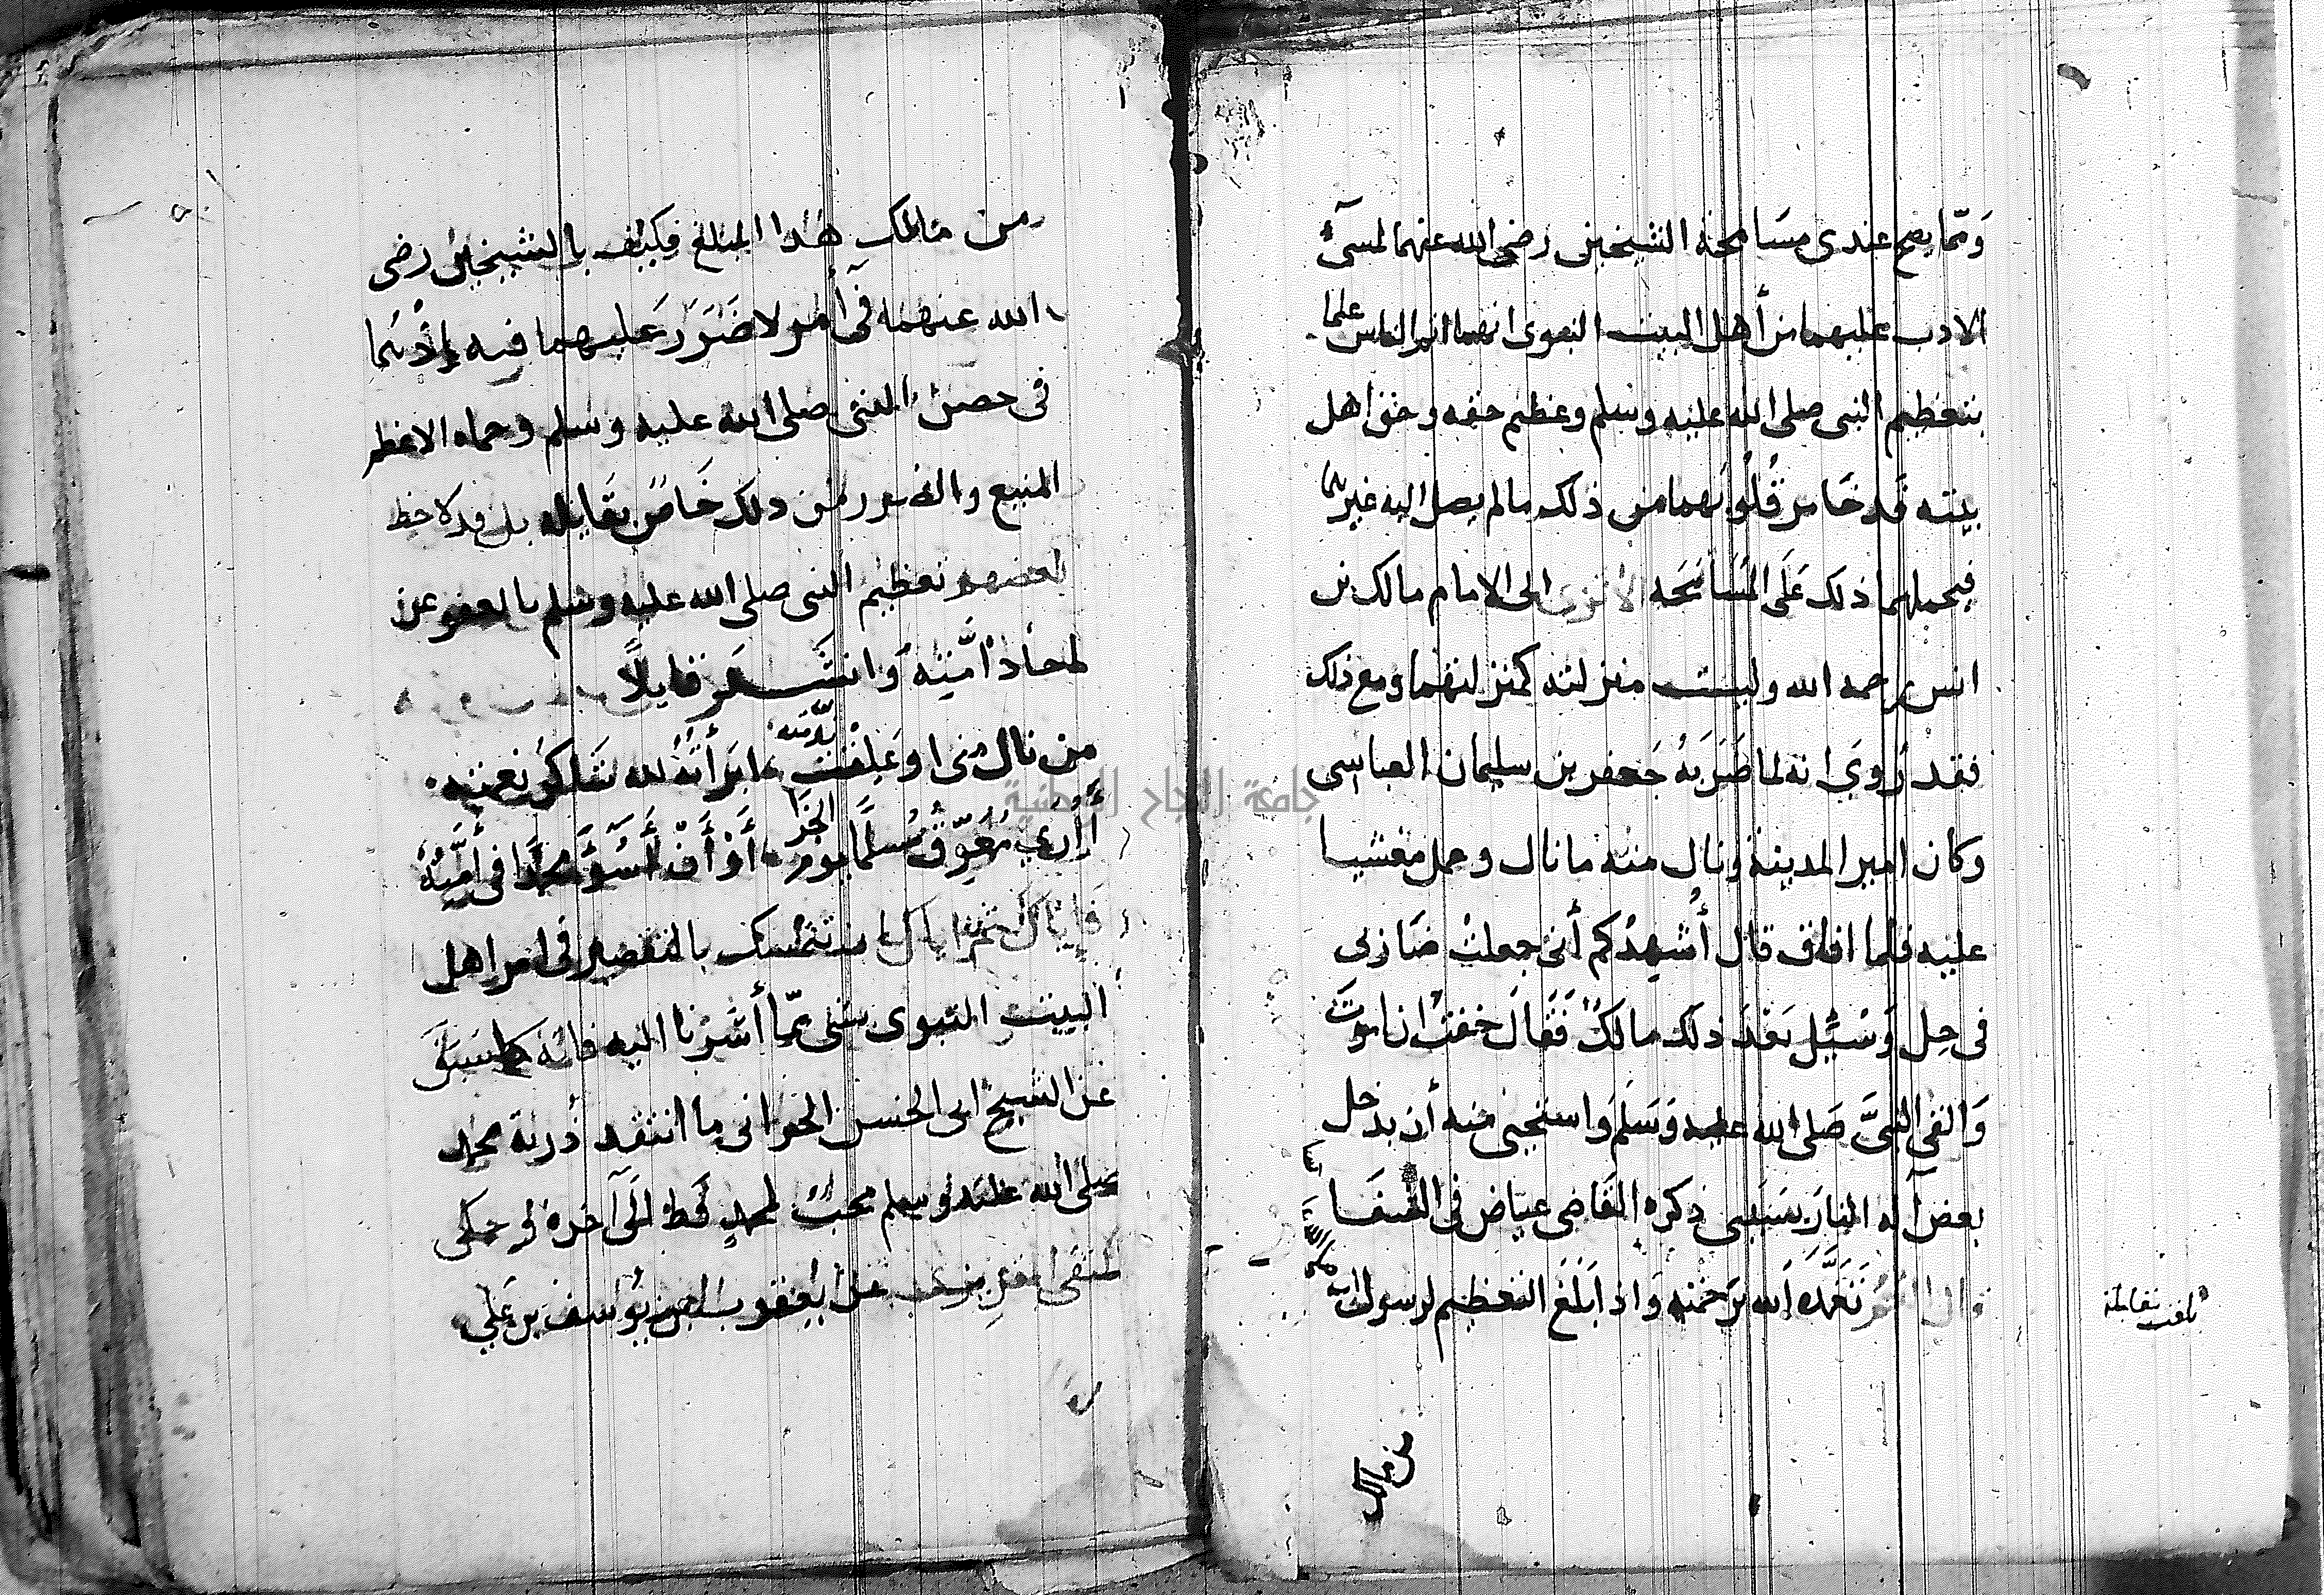 ومما يصح عندى مسامحة الشيخين رضى الله عنهما لمسىء
الادب عليهما من أهل البيت النبوى انهما اتم الناس علما
بتعظيم النبى صلى الله عليه وسلم وعظيم حقه وحق اهل
بيته قد خامر قُلُوبهما من ذلك مالم يصل اليه غيرهما
فيحملهما ذلك عَلَى المسَامَحَه الا ترى الى الامام مالك بن
انس رحمه الله وليست منزلته كمنزلتهما ومع ذلك
فقد رُوِيَ انه لما ضَرَبَهُ جَعفر بن سليمان العباسى
وكان امير المدينة ونال منه ما نال وحمل مغشيا
عليه فلما افاق قال أُشهِدُكم أنى جعلت ضَاربى
فى حِل وَسُئِل بَعْدَ ذلك مالك فَقَالَ خفت ان اموت
وَالقى النَّبىَّ صَلى الله عليه وَسَلم وَاستحيى منه أن يدخل
بعض آله النارَ بسَببى ذكره القَاضى عياض فى الشفَا
تَغَمَّدَهُ الله برَحمَتِه وَاذا بَلَغَ التعظيم لرسول الله
صلى الله عليه
من مالك
بلغت مقابلة
من مَالكٍ هَذا المبلغ فكَيْف بالشيخين رضى
الله عنهما فى أمر لا ضَرَرَ عَليهما فيه إذْ هُمَا
فى حصن النبى صلى الله عليه وسلم وحماه الاعظم
المنيع والضرر من ذلك خَاصٌ بقَايله بل قد لاحظ
بعضهم تعظيم النبى صلى الله عليه وسلم بالعفو عن
لمحاذ أمَّته وَانشَد قايلاً
من نال منى او عَلِقْتُ بذمّته ابرَأتُه لله شَاكرَ نعمته
أَأُرَى مُعَوِّقَ مُسْلمٍ يومَ الجزَا أَوْ أَنْ أَسُوَّ محمدًا فى أُمَّتِهْ
فَإيّاكَ ثم اياك ان تتمسك بالتقصير فى امر اهل
البيت النبوى بشىء ممّا أشَرْنا اليه فانه كما سَبَق
عَن الشيخ ابى الحسن الحرانى ما انتقد ذرية محمد
صلى الله عليه وسلم محب لمحمدٍ قط الى آخره وحكى
التقى المقريزى عن يعقوب بن يُوسف بن عَلي